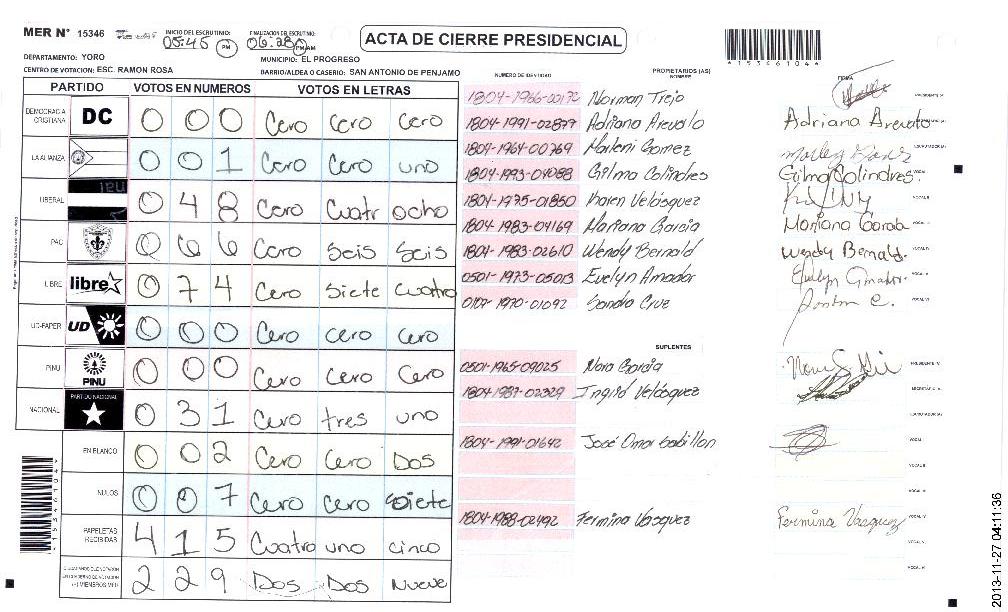 MER N° 15346 INICIO DEL ESCRUTINIO: 05:45 PM FINALIZACION DEL ESCRUTINIO: 06:28 PM AM
ACTA DE CIERRE PRESIDENCIAL
*15346104*
DEPARTAMENTO: YORO MUNICIPIO: EL PROGRESO
CENTRO DE VOTACION: ESC. RAMON ROSA BARRIO/ALDEA O CASERIO: SAN ANTONIO DE PENJAMO
PARTIDO VOTOS EN NUMEROS VOTOS EN LETRAS
DEMOCRACIA CRISTIANA DC 0 0 0 Cero Cero Cero
LA ALIANZA 0 0 1 Cero Cero uno
LIBERAL 0 4 8 Cero Cuatr ocho
PAC 0 6 6 Cero Seis Seis
LIBRE libre 0 7 4 Cero Siete Cuatro
UD-FAPER UD 0 0 0 Cero Cero Cero
PINU PINU 0 0 0 Cero Cero Cero
NACIONAL PARTIDO NACIONAL 0 3 1 Cero tres uno
EN BLANCO 0 0 2 Cero Cero Dos
NULOS 0 0 7 Cero Cero Siete
PAPELETAS RECIBIDAS 4 1 5 Cuatro uno cinco
2 2 9 Dos Dos Nueve
NUMERO DE IDENTIDAD PROPIETARIOS (AS) NOMBRE FIRMA
1804-1966-00172 Norman Trejo
1804-1991-02877 Adriana Arevalo Adriana Arevalo
1804-1964-00769 Marleni Gomez
1804-1993-04088 Gilma Colindres Gilma Colindres
1804-1975-01850 Karen Velásquez
1804-1983-04169 Mariana Garcia Mariana Garcia
1804-1983-02610 Wendy Bernald Wendy Bernald
0501-1973-05013 Evelyn Amador Evelyn Amador
0107-1970-01092 Sandra Cruz
SUPLENTES
0501-1965-09025 Nora Garcia
1804-1987-02329 Ingrid Velásquez
1804-1991-01642 José Omar Gabillan
1804-1988-02492 Fermina Vasquez Fermina Vasquez
2013-11-27 04:11:36